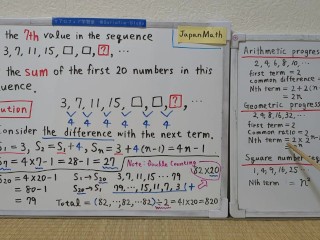 JapanMath
the 7th value in the sequence
3, 7, 11, 15, □, □, ?, …
the sum of the first 20 numbers in this
quence.
ution
3, 7, 11, 15, □, □, ?, …
4 4 4 4 4 4
Consider the difference with the next term.
S1 = 3, S2 = S1 + 4, Sn = 3 + 4(n-1) = 4n-1
S7 = 4×7-1 = 28-1 = 27
Note: Double Counting
S20 = 4×20-1
= 80-1
= 79
S1→S20 3, 7, 11, 15 … 79
S20→S1 79, …, 15, 11, 7, 3 (+
82×20
Total = (82, …, 82, 82) ÷ 2 = 41×20 = 820
Arithmetic progres
2, 4, 6, 8, 10, …
first term = 2
common difference = 2
Nth term = 2 + 2(n-
= 2n
Geometric progre
2, 4, 8, 16, 32, …
first term = 2
Common ratio = 2
Nth term = 2 × 2
Square number
1, 4, 9, 16, 25
Nth term = n²